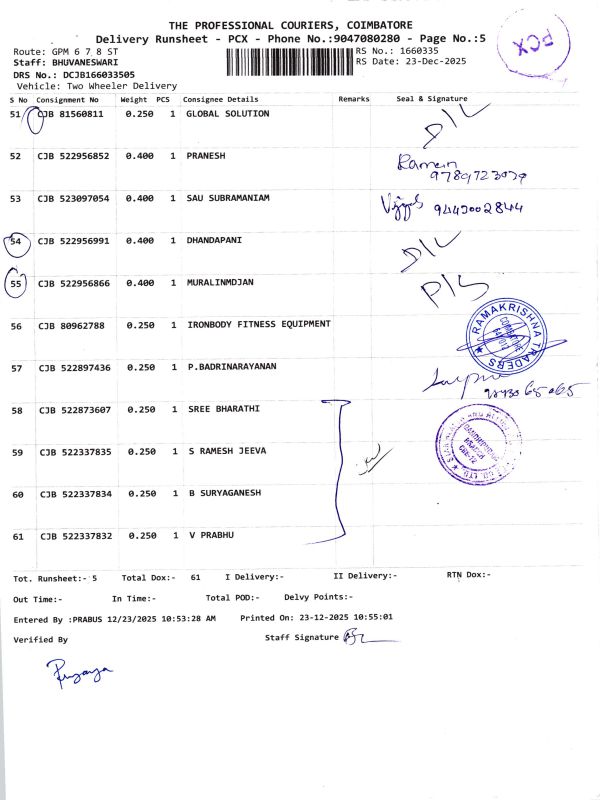 THE PROFESSIONAL COURIERS, COIMBATORE
Delivery Runsheet - PCX - Phone No.:9047080280 - Page No.:5
PCX
Route: GPM 6 7 8 ST
RS No.: 1660335
Staff: BHUVANESWARI
RS Date: 23-Dec-2025
DRS No.: DCJB166033505
Vehicle: Two Wheeler Delivery
S No Consignment No Weight PCS Consignee Details Remarks Seal & Signature
51 CJB 81560811 0.250 1 GLOBAL SOLUTION D/L
52 CJB 522956852 0.400 1 PRANESH
9789723079
53 CJB 523097054 0.400 1 SAU SUBRAMANIAM 9445002844
54 CJB 522956991 0.400 1 DHANDAPANI D/L
55 CJB 522956866 0.400 1 MURALINMDJAN P/S
56 CJB 80962788 0.250 1 IRONBODY FITNESS EQUIPMENT RAMAKRISHNA TRADERS
57 CJB 522897436 0.250 1 P.BADRINARAYANAN
58 CJB 522873607 0.250 1 SREE BHARATHI
59 CJB 522337835 0.250 1 S RAMESH JEEVA
60 CJB 522337834 0.250 1 B SURYAGANESH
61 CJB 522337832 0.250 1 V PRABHU
Tot. Runsheet:- 5 Total Dox:- 61 I Delivery:- II Delivery:- RTN Dox:-
Out Time:- In Time:- Total POD:- Delvy Points:-
Entered By :PRABUS 12/23/2025 10:53:28 AM Printed On: 23-12-2025 10:55:01
Verified By Staff Signature